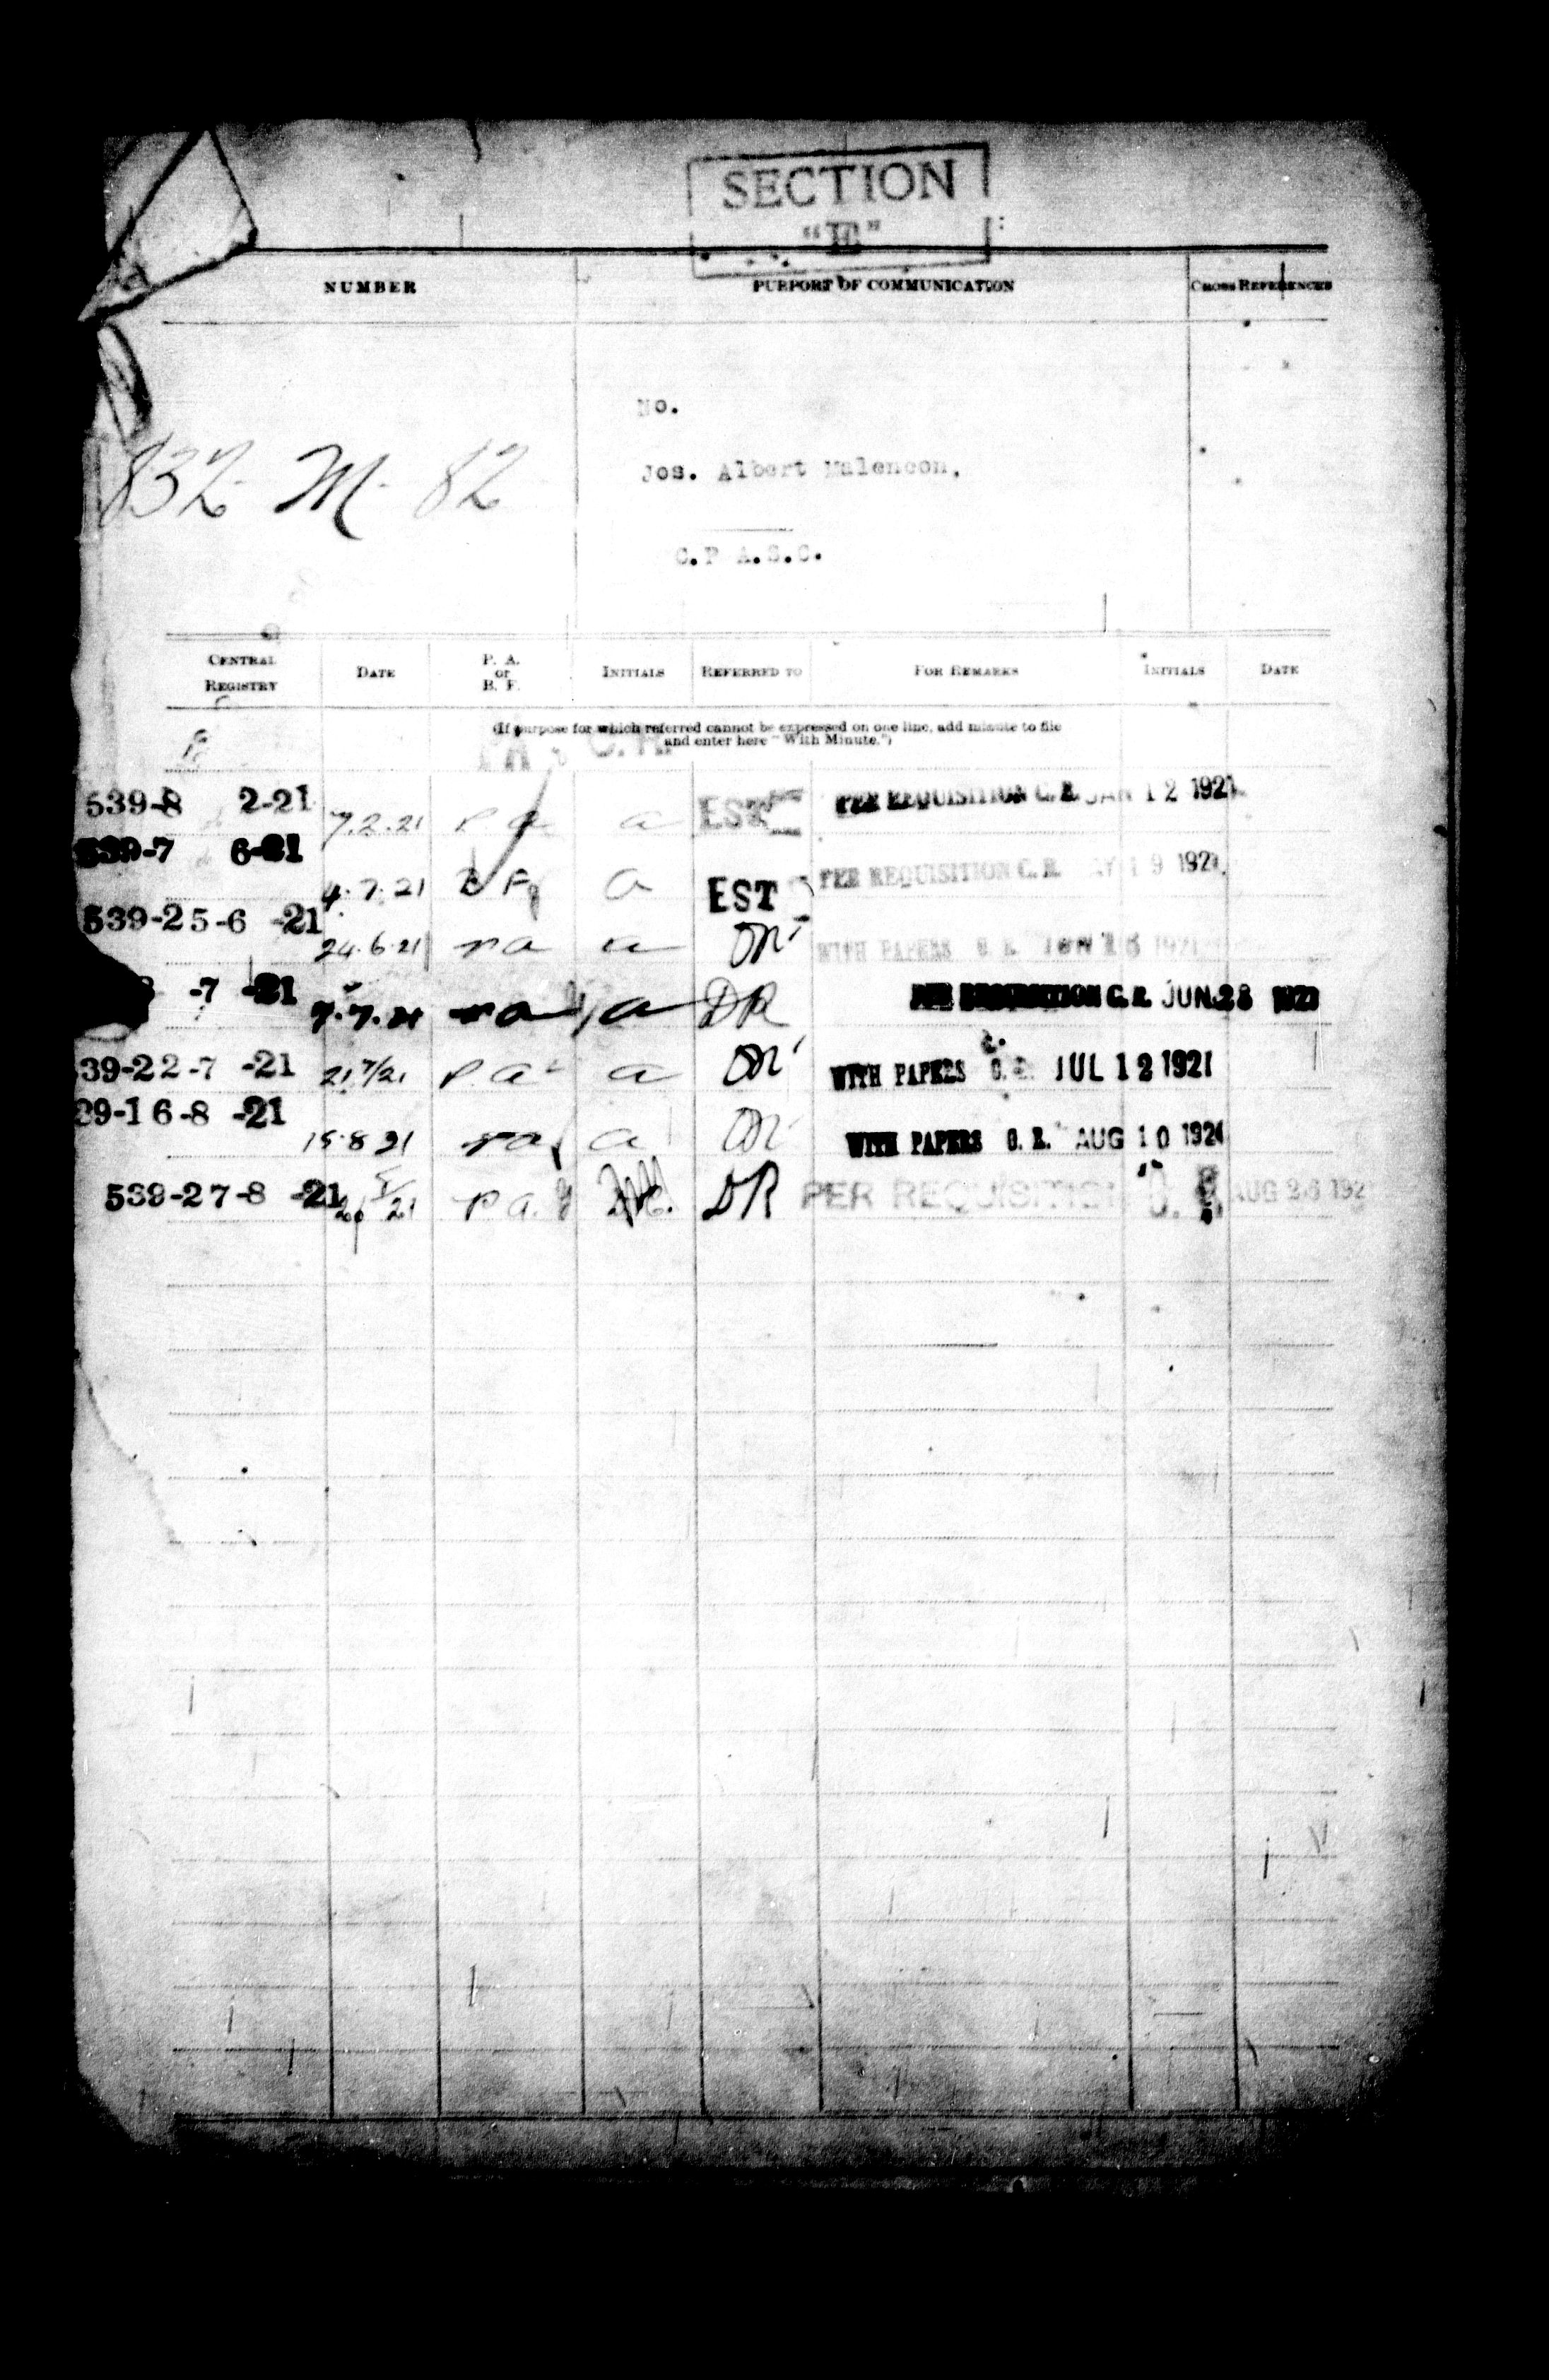 SECTION
"E"
NUMBER PURPORT OF COMMUNICATION CROSS REFERENCES
No.
832-M-82 Jos. Albert Malencon.
C.F A.S.C.
CENTRAL REGISTRY DATE P. A. or B. F. INITIALS REFERRED TO FOR REMARKS INITIALS DATE
(If purpose for which referred cannot be expressed on one line, add minute to file
and enter here "With Minute.")
539-8 2-21 7.2.21 P.a a EST PER REQUISITION C.R. JAN 12 1921
539-7 6-21 4.7.21 B F a EST PER REQUISITION C.R. 19 1921
539-25-6 -21 24.6.21 a WITH PAPERS C.R. JUN 1921
-7 -21 7.7.21 a DR PER REQUISITION C.R. JUN 28 1921
39-22-7 -21 21 7/21 P.a a WITH PAPERS C.R. JUL 12 1921
39-16-8 -21 15.8 21 a WITH PAPERS C.R. AUG 10 1921
539-27-8 -21 21 P a. DR PER REQUISITION C. R. AUG 26 192